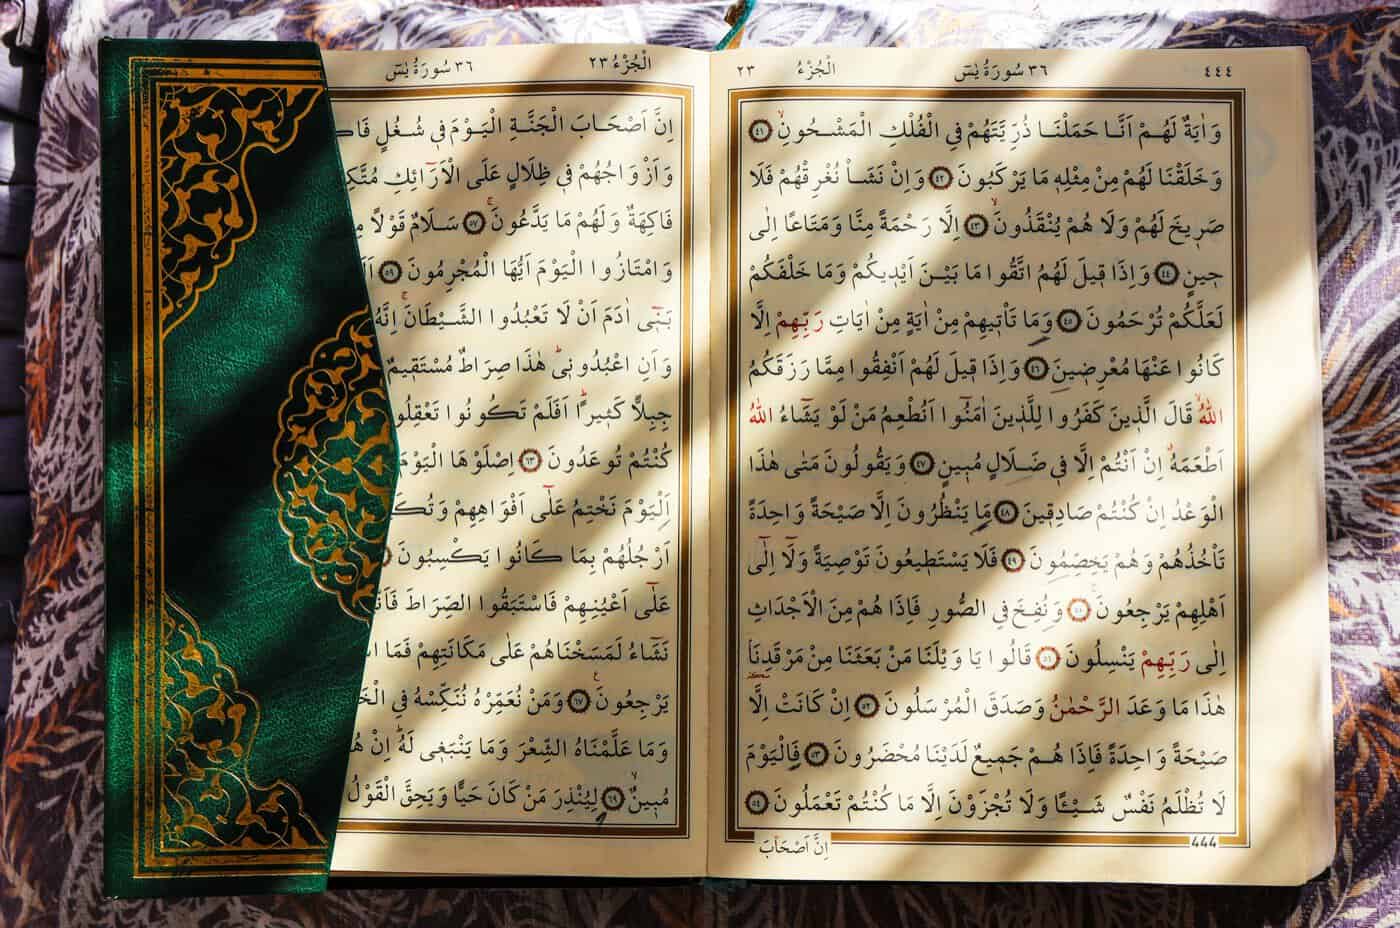 ٤٤٤ ٣٦ سُورَةُ يٰسٓ اَلْجُزْءُ ٢٣
وَاٰيَةٌ لَهُمْ اَنَّا حَمَلْنَا ذُرِّيَّتَهُمْ فِي الْفُلْكِ الْمَشْحُونِۙ ٤١
وَخَلَقْنَا لَهُمْ مِنْ مِثْلِه۪ مَا يَرْكَبُونَ ٤٢ وَاِنْ نَشَأْ نُغْرِقْهُمْ فَلَا
صَر۪يخَ لَهُمْ وَلَا هُمْ يُنْقَذُونَۙ ٤٣ اِلَّا رَحْمَةً مِنَّا وَمَتَاعًا اِلٰى
ح۪ينٍ ٤٤ وَاِذَا ق۪يلَ لَهُمُ اتَّقُوا مَا بَيْنَ اَيْد۪يكُمْ وَمَا خَلْفَكُمْ
لَعَلَّكُمْ تُرْحَمُونَ ٤٥ وَمَا تَأْت۪يهِمْ مِنْ اٰيَةٍ مِنْ اٰيَاتِ رَبِّهِمْ اِلَّا
كَانُوا عَنْهَا مُعْرِض۪ينَ ٤٦ وَاِذَا ق۪يلَ لَهُمْ اَنْفِقُوا مِمَّا رَزَقَكُمُ
اللّٰهُۙ قَالَ الَّذ۪ينَ كَفَرُوا لِلَّذ۪ينَ اٰمَنُٓوا اَنُطْعِمُ مَنْ لَوْ يَشَٓاءُ اللّٰهُ
اَطْعَمَهُۗ اِنْ اَنْتُمْ اِلَّا ف۪ي ضَلَالٍ مُب۪ينٍ ٤٧ وَيَقُولُونَ مَتٰى هٰذَا
الْوَعْدُ اِنْ كُنْتُمْ صَادِق۪ينَ ٤٨ مَا يَنْظُرُونَ اِلَّا صَيْحَةً وَاحِدَةً
تَأْخُذُهُمْ وَهُمْ يَخِصِّمُونَ ٤٩ فَلَا يَسْتَط۪يعُونَ تَوْصِيَةً وَلَٓا اِلٰٓى
اَهْلِهِمْ يَرْجِعُونَ۟ ٥٠ وَنُفِخَ فِي الصُّورِ فَاِذَا هُمْ مِنَ الْاَجْدَاثِ
اِلٰى رَبِّهِمْ يَنْسِلُونَ ٥١ قَالُوا يَا وَيْلَنَا مَنْ بَعَثَنَا مِنْ مَرْقَدِنَا
هٰذَا مَا وَعَدَ الرَّحْمٰنُ وَصَدَقَ الْمُرْسَلُونَ ٥٢ اِنْ كَانَتْ اِلَّا
صَيْحَةً وَاحِدَةً فَاِذَا هُمْ جَم۪يعٌ لَدَيْنَا مُحْضَرُونَ ٥٣ فَالْيَوْمَ
لَا تُظْلَمُ نَفْسٌ شَيْـًٔا وَلَا تُجْزَوْنَ اِلَّا مَا كُنْتُمْ تَعْمَلُونَ ٥٤
444 اِنَّ اَصْحَابَ
اَلْجُزْءُ ٢٣ ٣٦ سُورَةُ يٰسٓ
اِنَّ اَصْحَابَ الْجَنَّةِ الْيَوْمَ ف۪ي شُغُلٍ
وَاَزْوَاجُهُمْ ف۪ي ظِلَالٍ عَلَى الْاَرَٓائِكِ
فَاكِهَةٌ وَلَهُمْ مَا يَدَّعُونَۚ ٥٧ سَلَامٌ قَوْلًا
وَامْتَازُوا الْيَوْمَ اَيُّهَا الْمُجْرِمُونَ ٥٩
بَن۪ٓي اٰدَمَ اَنْ لَا تَعْبُدُوا الشَّيْطَانَۚ اِنَّهُ
وَاَنِ اعْبُدُون۪يۜ هٰذَا صِرَاطٌ مُسْتَق۪يمٌ
جِبِلًّا كَث۪يرًاۜ اَفَلَمْ تَكُونُوا
كُنْتُمْ تُوعَدُونَ ٦٣ اِصْلَوْهَا الْيَوْمَ
اَلْيَوْمَ نَخْتِمُ عَلٰٓى اَفْوَاهِهِمْ
اَرْجُلُهُمْ بِمَا كَانُوا يَكْسِبُونَ
عَلٰٓى اَعْيُنِهِمْ فَاسْتَبَقُوا الصِّرَاطَ
نَشَٓاءُ لَمَسَخْنَاهُمْ عَلٰى مَكَانَتِهِمْ فَمَا
يَرْجِعُونَ۟ ٦٧ وَمَنْ نُعَمِّرْهُ نُنَكِّسْهُ فِي
وَمَا عَلَّمْنَاهُ الشِّعْرَ وَمَا يَنْبَغ۪ي لَهُۜ اِنْ
مُب۪ينٌۙ ٦٩ لِيُنْذِرَ مَنْ كَانَ حَيًّا وَيَحِقَّ الْقَوْلُ